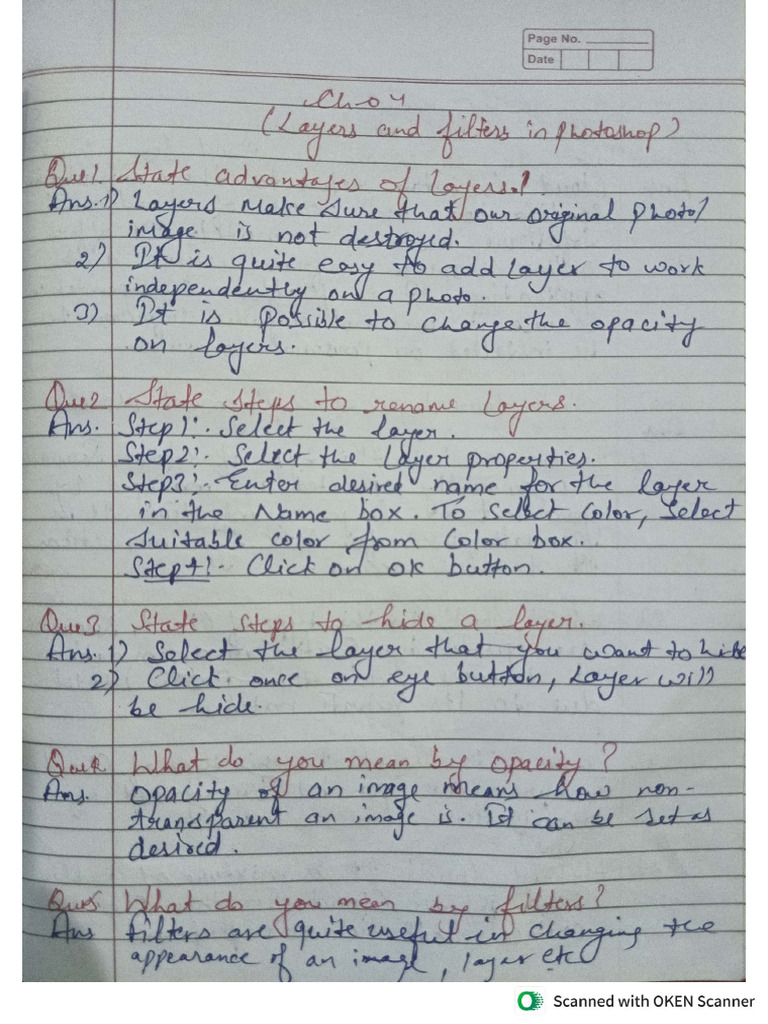 Page No.
Date
Ch 04
(Layers and filters in photoshop)
Que1. State advantages of layers.
Ans. 1) Layers make sure that our original photo/
image is not destroyed.
2) It is quite easy to add layer to work
independently on a photo.
3) It is possible to change the opacity
on layers.
Que2 State steps to rename layers.
Ans. Step1:. Select the layer.
Step2:. Select the Layer properties.
Step3:. Enter desired name for the layer
in the Name box. To select color, select
suitable color from color box.
Step4:. Click on ok button.
Que3 State steps to hide a layer.
Ans. 1) Select the layer that you want to hide
2) Click once on eye button, layer will
be hide.
Que4 What do you mean by opacity?
Ans. Opacity of an image means how non-
transparent an image is. It can be set as
desired.
Que5 What do you mean by filters?
Ans filters are quite useful in changing the
appearance of an image, layer etc
Scanned with OKEN Scanner